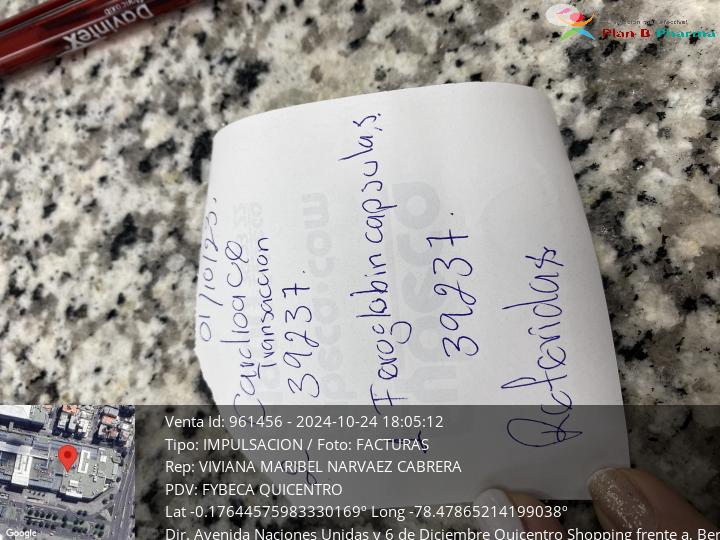 Davintex
Plan B Pharma
01/10/23.
Cardioace
Transaccion
39237.
Feroglobin capsulas.
39237.
Referidas
Venta Id: 961456 - 2024-10-24 18:05:12
Tipo: IMPULSACION / Foto: FACTURAS
Rep: VIVIANA MARIBEL NARVAEZ CABRERA
PDV: FYBECA QUICENTRO
Lat -0.17644575983330169° Long -78.47865214199038°
Dir. Avenida Naciones Unidas y 6 de Diciembre Quicentro Shopping frente a. Ber
Google